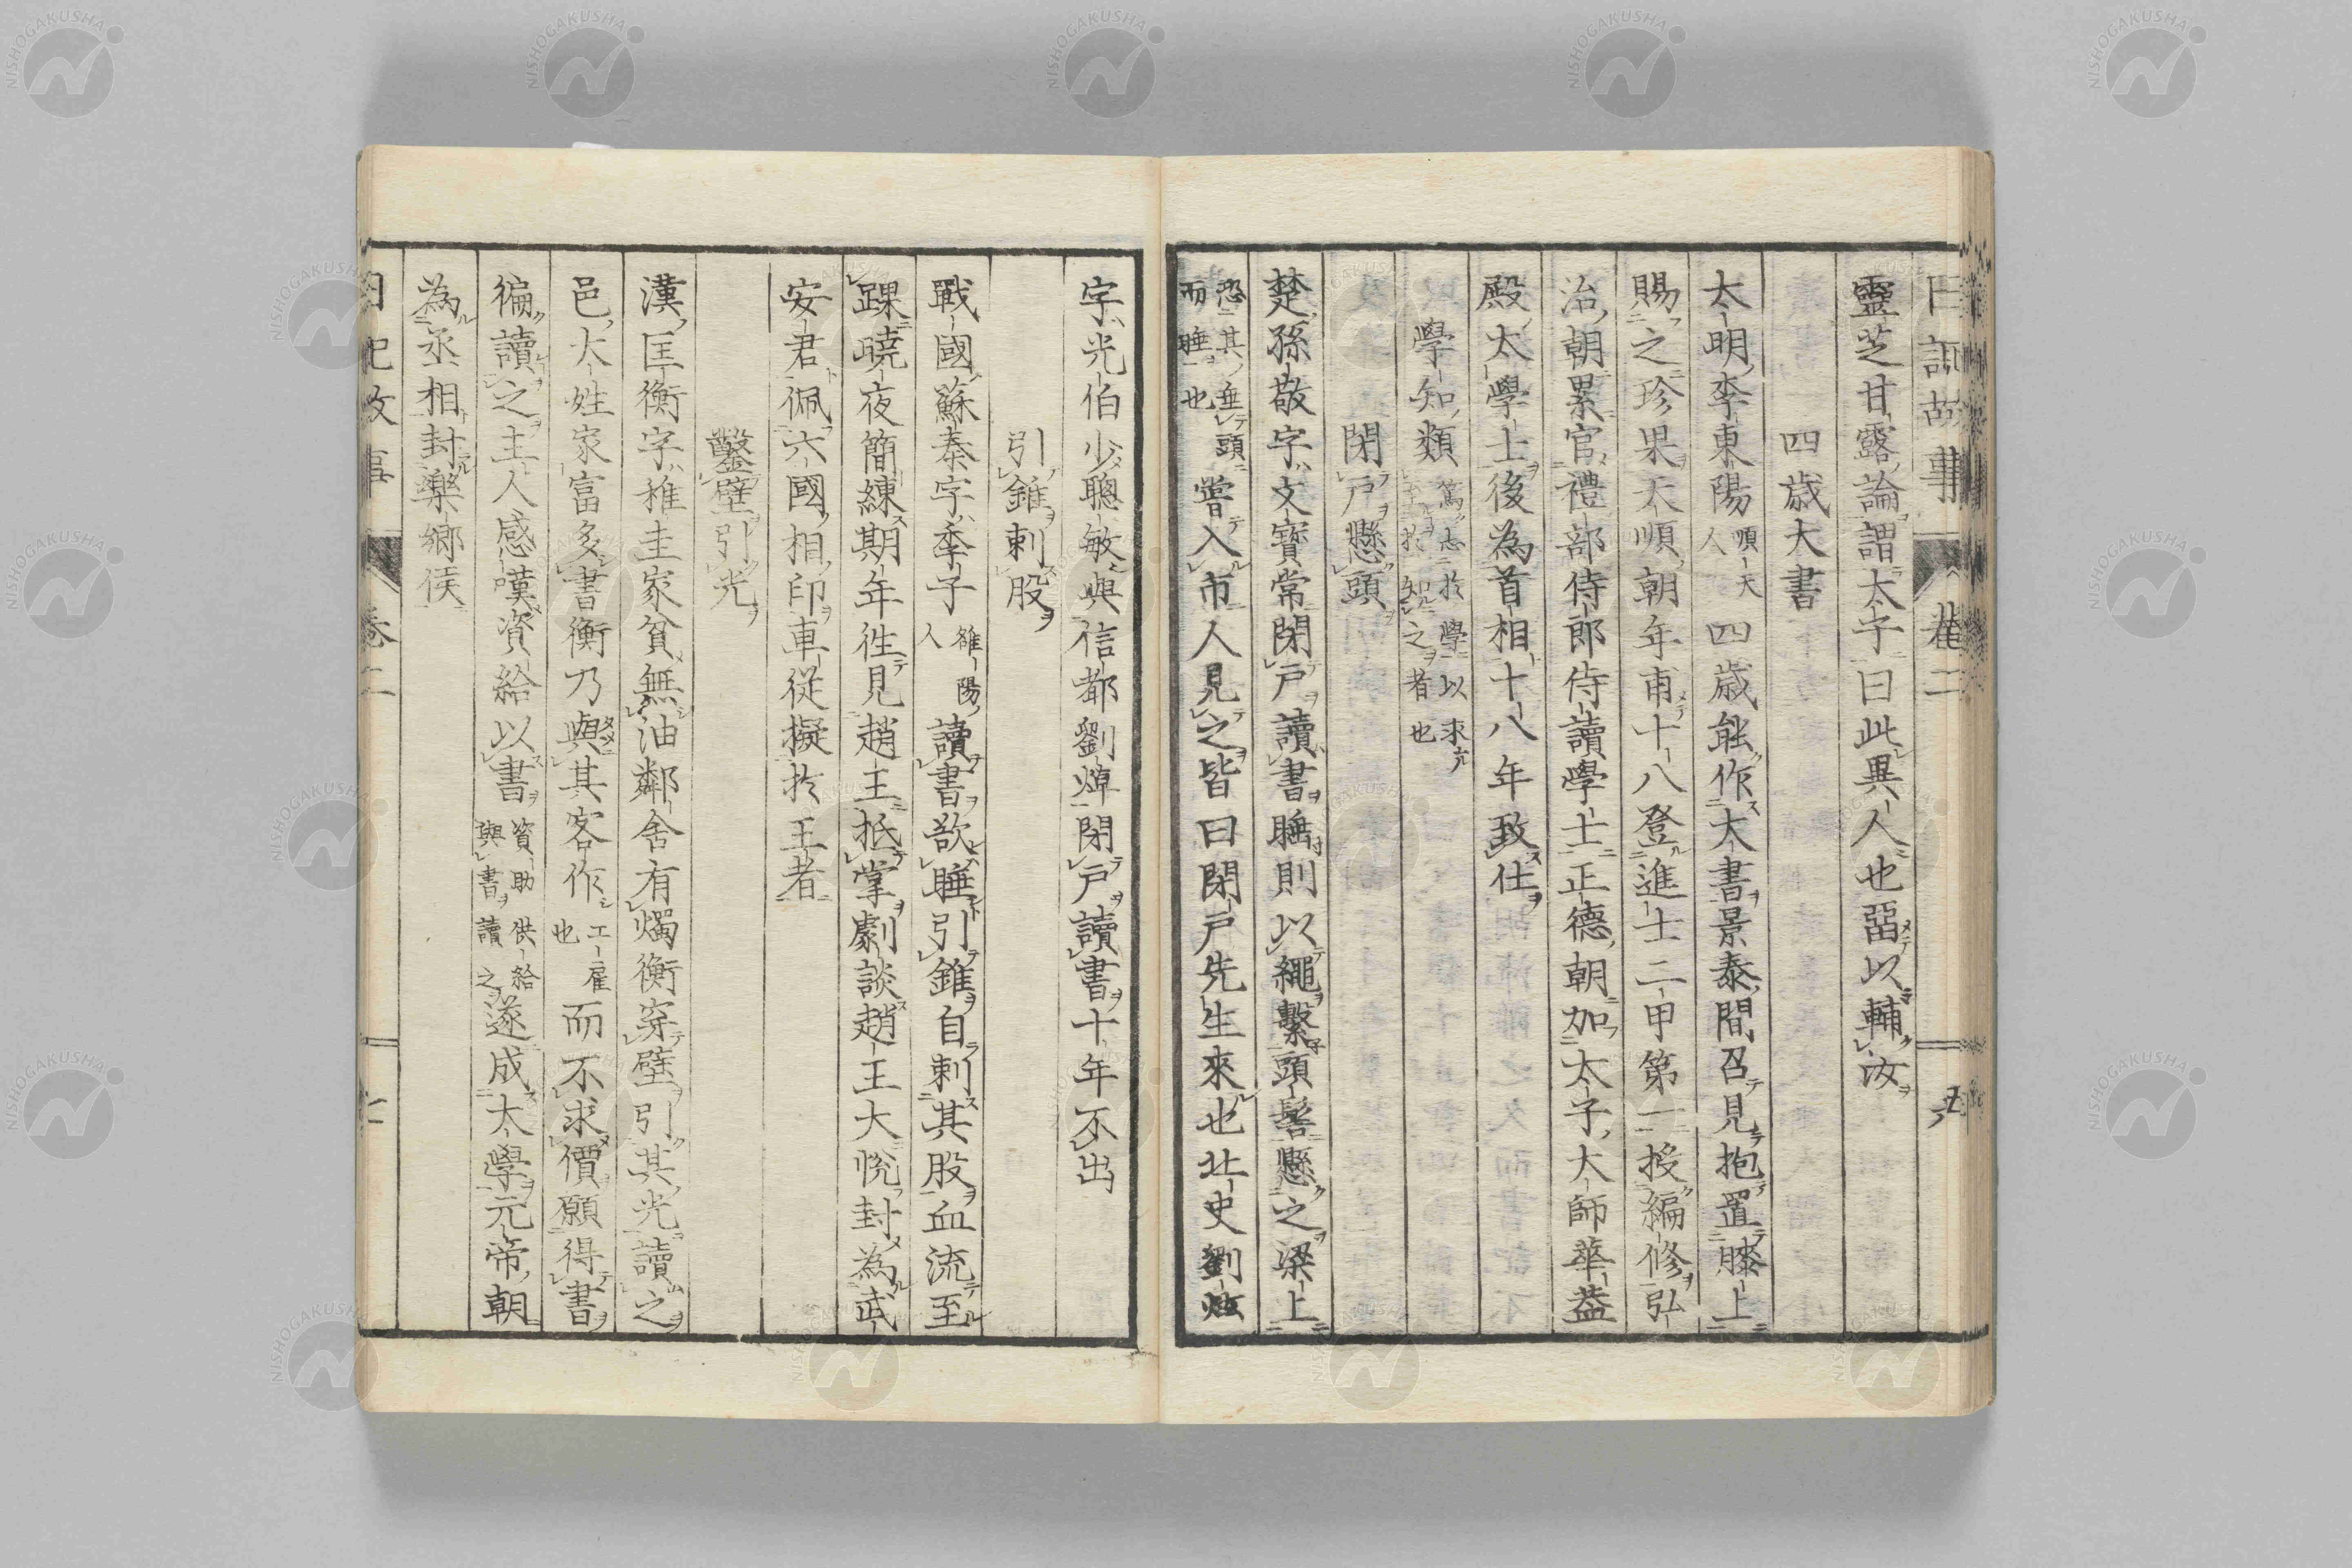 日記故事 巻二 五
靈芝甘露論謂太子曰此異人也畱以輔汝
四歳大書
大明李東陽順天人四歳能作大書景泰間召見抱置膝上
賜之珍果天順朝年甫十八登進士二甲第一授編修弘
治朝累官禮部侍郎侍讀學士正德朝加太子太師華蓋
殿大學士後為首相十八年致仕
學知類篤志於學以求至於知之者也
閉戸懸頭
楚孫敬字文寶常閉戸讀書睡則以繩繫頭髻懸之梁上
恐其垂頭而睡也嘗入市人見之皆曰閉戸先生來也北史劉炫
字光伯少聰敏與信都劉焯閉戸讀書十年不出
引錐刺股
戰國蘇秦字季子雒陽人讀書欲睡引錐自刺其股血流至
踝曉夜簡練期年徃見趙王抵掌劇談趙王大悅封為武
安君佩六國相印車從擬於王者
鑿壁引光
漢匡衡字稚圭家貧無油鄰舍有燭衡穿壁引其光讀之
邑大姓家富多書衡乃與其客作工雇也而不求價願得書
徧讀之主人感嘆資給以書資助供給與書讀之遂成大學元帝朝
為丞相封樂鄉侯
日記故事 巻二 七
NISHOGAKUSHA